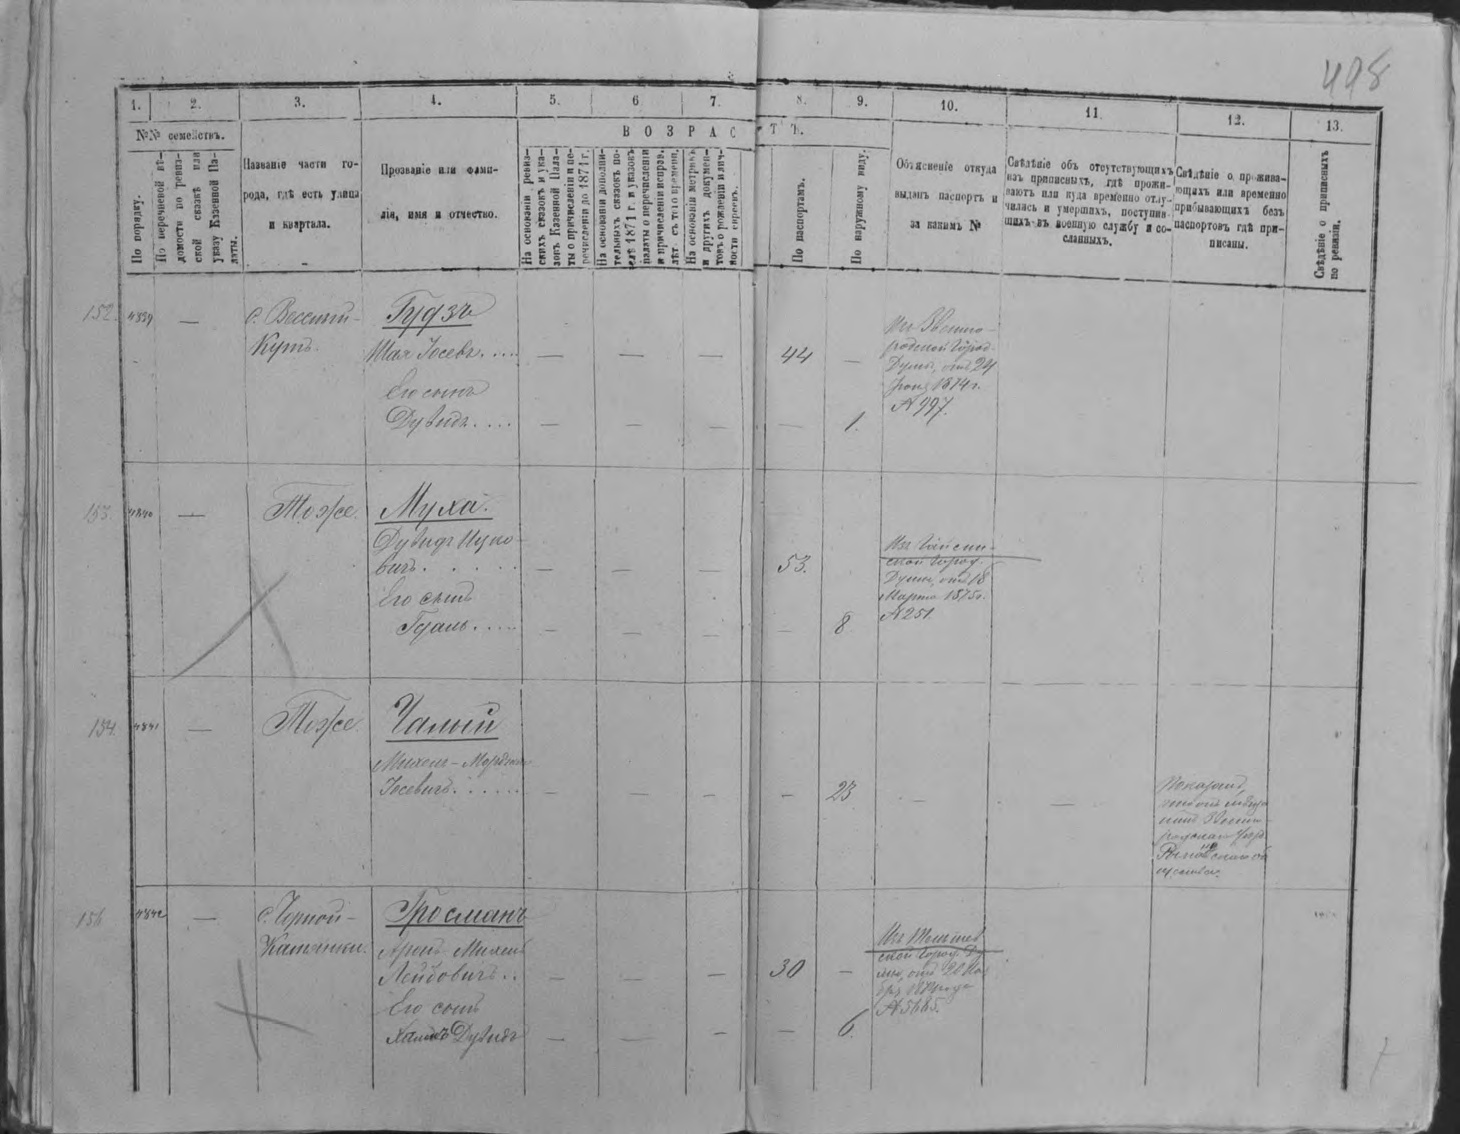 498
1. 2. 3. 4. 5. 6 7. 8. 9. 10. 11. 12. 13.
№№ семействъ.
В О З Р А С Т Ъ.
По порядку.
По перечневой вѣ-
домости по ревиз-
ской сказкѣ или
указу Казенной Па-
латы.
Названіе части го-
рода, гдѣ есть улица
и квартала.
Прозваніе или фами-
лія, имя и отчество.
На основаніи ревиз-
скихъ сказокъ и ука-
зовъ Казенной Пала-
ты о причисленіи и пе-
речисленіи до 1871 г.
На основаніи дополни-
тельныхъ сказокъ по-
слѣ 1871 г. и указовъ
палаты о перечисленіи
и причисленіи исправ.
лѣт. съ того времени.
На основаніи метрикъ
и другихъ докумен-
товъ о рожденіи и лич-
ности евреевъ.
По паспортамъ.
По наружному виду.
Объясненіе откуда
выданъ паспортъ и
за какимъ №
Свѣдѣніе объ отсутствующихъ
изъ приписныхъ, гдѣ прожи-
ваютъ или куда временно отлу-
чились и умершихъ, поступив-
шихъ въ военную службу и со-
сланныхъ.
Свѣдѣніе о прожива-
ющихъ или временно
прибывающихъ безъ
паспортовъ гдѣ при-
писаны.
Свѣдѣніе о приписныхъ
по ревизіи.
152. 4839 — с. Веселый-
Кутъ.
Гудзъ
Шая Іосевъ.... — — — 44 —
Его сынъ
Дувидъ.... — — — — 1.
Изъ Звенио-
родской Город.
Думы, отъ 24
1874 г.
№ 997.
153. 4840 — Тоже.
Муха.
Дувидъ Ицко-
вичъ..... — — — 53.
Его сынъ
Гдаль..... — — — — 8
Изъ Гайсин-
ской Город.
Думы, отъ 18
Марта 1875 г.
№ 251.
154. 4841 — Тоже.
Чалый
Михель-Мордко
Іосевичъ...... — — — — 23 — —
4842 — с. Черной-
Каменки.
Гросманъ
Аронъ Михель
Лейбовичъ.. — — — 30 —
Его сынъ
Дувидъ — — — — 6.
ской Город. Ду-
мы, отъ
№ 5685.